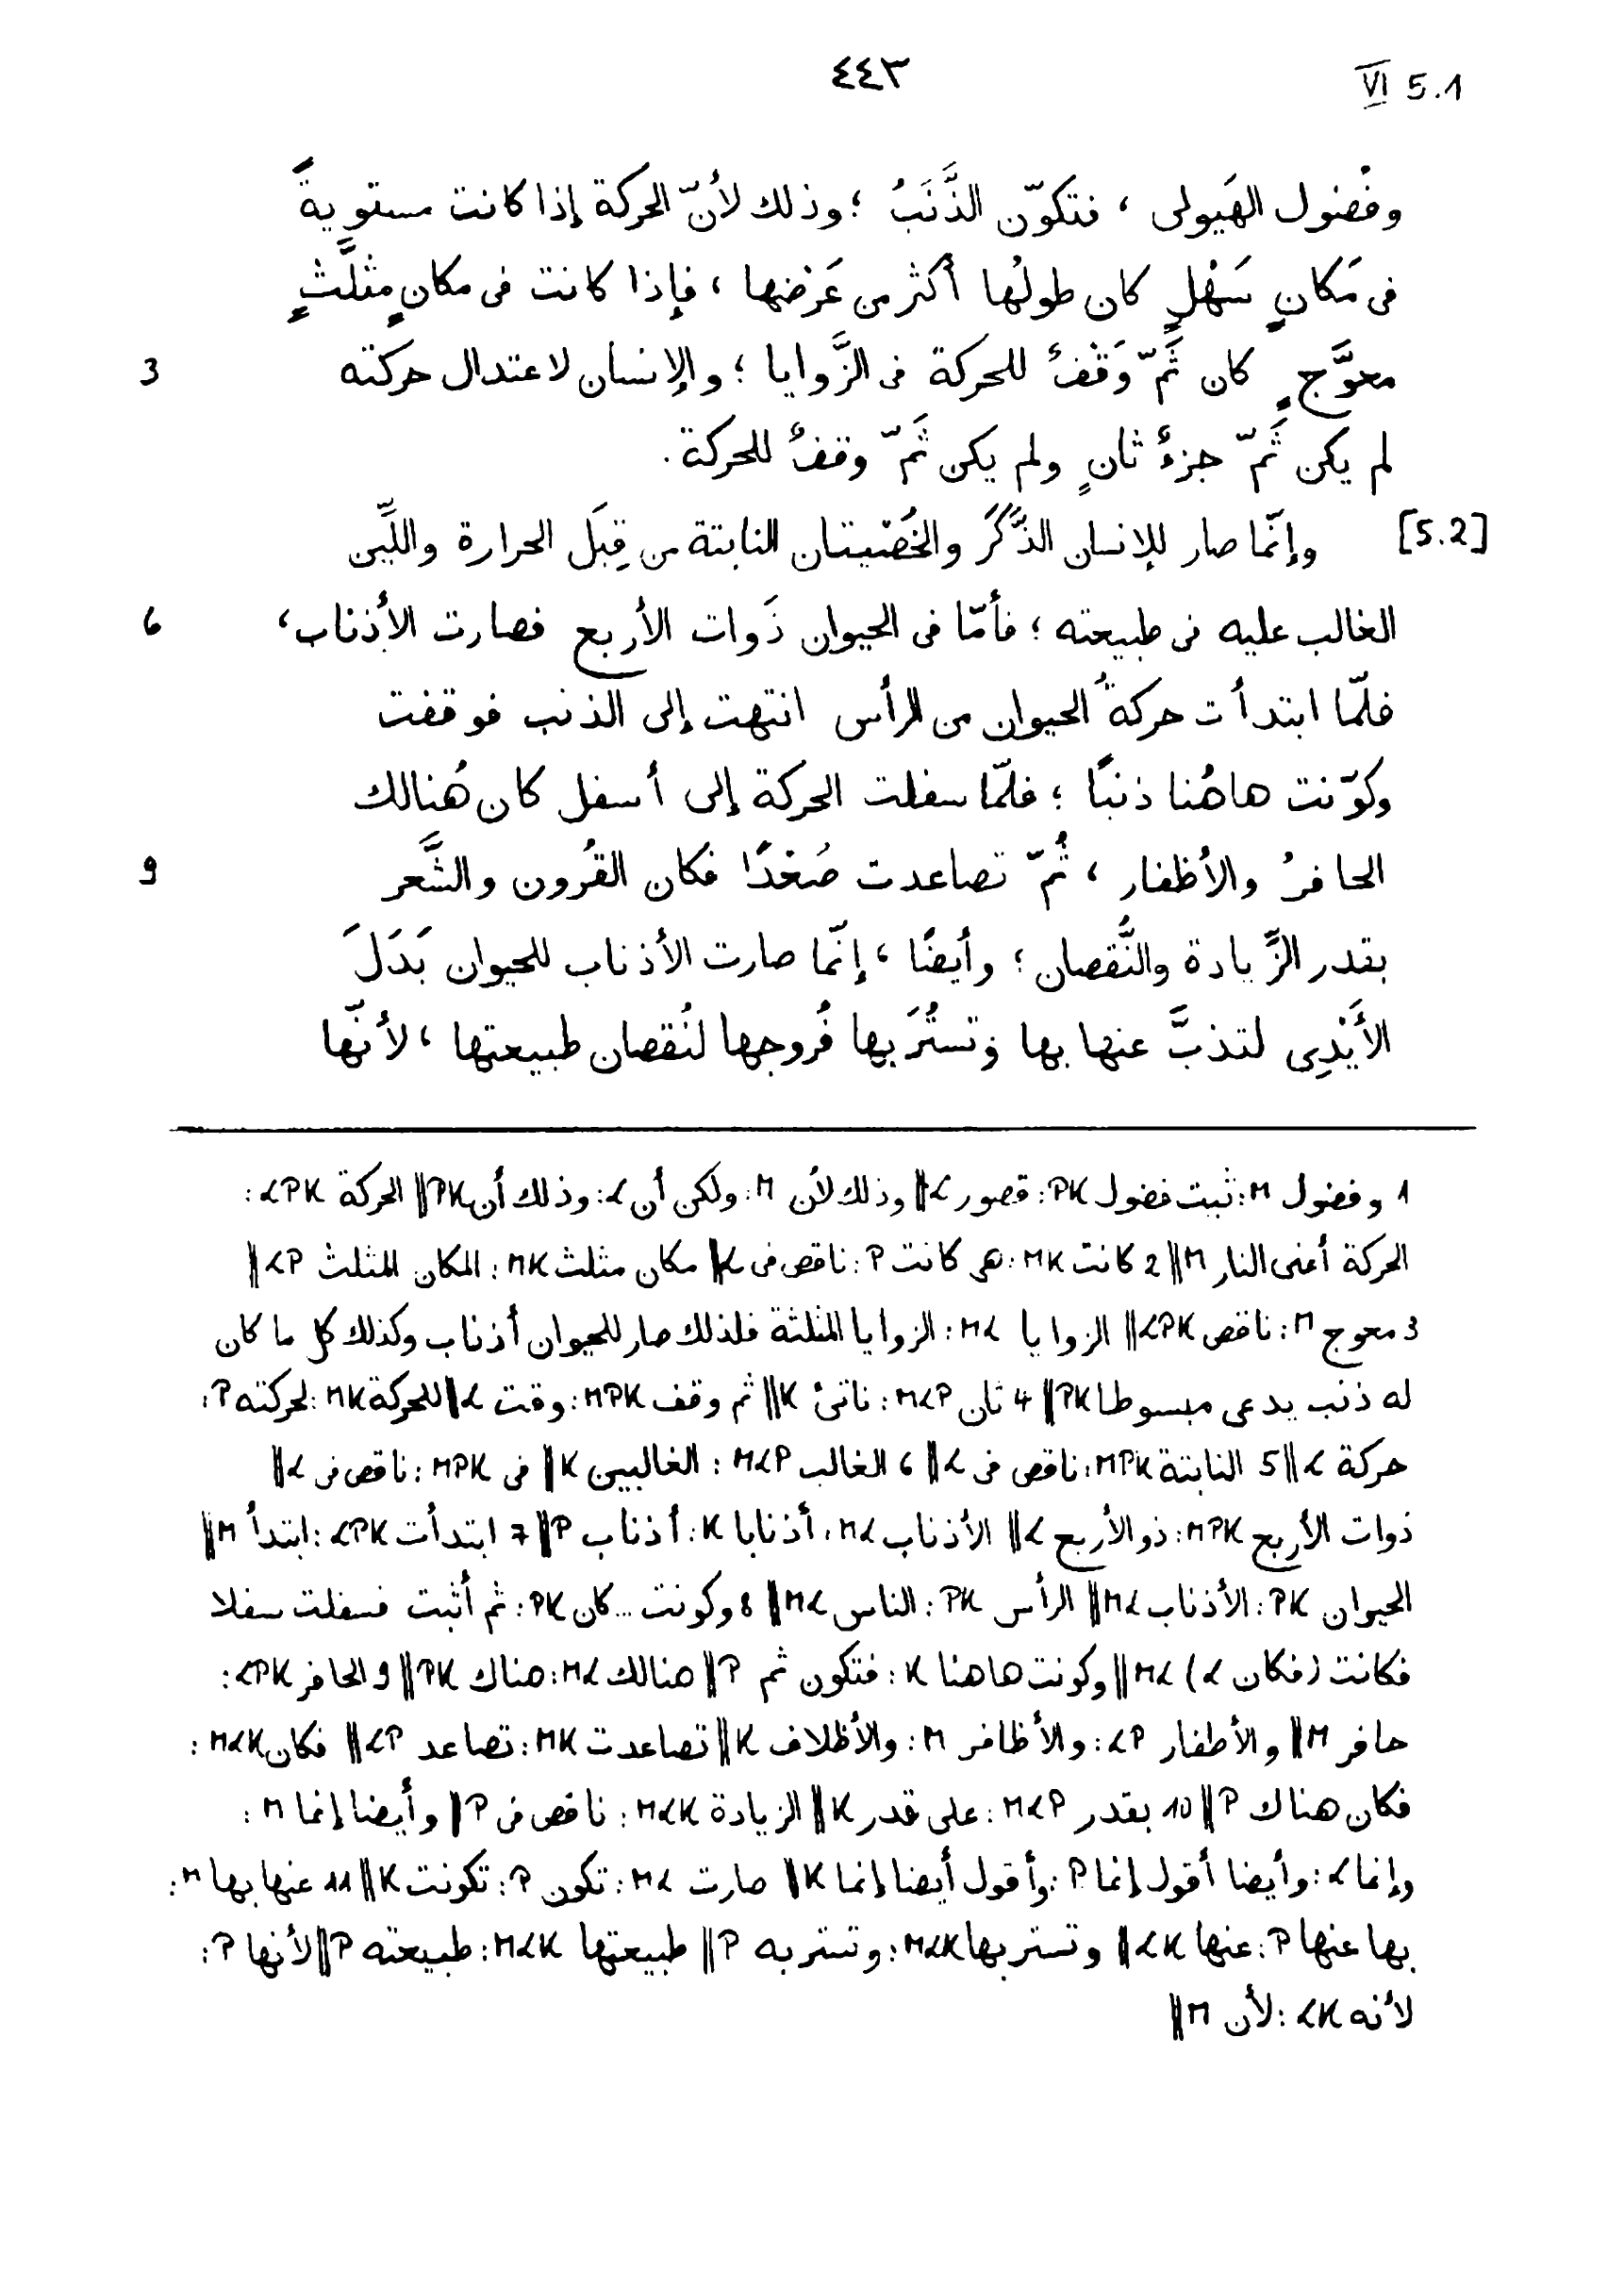 ٤٤٣
VI 5.1
وفُضول الهَيولى ، فتكوّن الذَّنَبُ ؛ وذلك لأنّ الحركة إذا كانت مستويةً
فى مَكانٍ سَهْلٍ كان طولُها أكثر من عَرْضها ، فإذا كانت فى مكانٍ مثلَّثٍ
3 معوَّجٍ كان ثَمّ وَقْفٌ للحركة فى الزَّوايا ؛ والإنسان لاعتدال حركته
لم يكن ثَمّ جزءٌ ثانٍ ولم يكن ثَمّ وقفٌ للحركة .
[5.2] وإنّما صار للإنسان الذَّكَرَ والخُصْيتان النابتة من قِبَل الحرارة واللِّين
6 الغالب عليه فى طبيعته ؛ فأمّا فى الحيوان ذَوات الأربع فصارت الأذناب ،
فلمّا ابتدأت حركةُ الحيوان من الرأس انتهت إلى الذنب فوقفت
وكوّنت هاهُنا ذنبًا ؛ فلمّا سفلت الحركة إلى أسفل كان هُنالك
9 الحافرُ والأظفار ، ثُمّ تصاعدت صُعْدًا فكان القُرون والشَّعر
بقدر الزِّيادة والنُّقصان ؛ وأيضًا ، إنّما صارت الأذناب للحيوان بَدَلَ
الأَيْدِى لتذبَّ عنها بها وتستُرَ بها فُروجها لنُقصان طبيعتها ، لأنّها
1 وفضول M : ثبت فضول PK : قصور L || وذلك لأن M : ولكن أن L : وذلك أن PK || الحركة LPK :
الحركة أعنى النار M || 2 كانت MK : هى كانت P : ناقص فى L || مكان مثلث MK : المكان المثلث LP ||
3 معوج M : ناقص LPK || الزوايا ML : الزوايا المثلثة فلذلك صار للحيوان أذناب وكذلك كل ما كان
له ذنب يدعى مبسوطا PK || 4 ثان MLP : ناتئ K || ثم وقف MPK : وقت L || للحركة MK : لحركته P :
حركة L || 5 النابتة MPK : ناقص فى L || 6 الغالب MLP : الغالبين K || فى MPK : ناقص فى L ||
ذوات الأربع MPK : ذو الأربع L || الأذناب ML : أذنابا K : أذناب P || 7 ابتدأت LPK : ابتدأ M ||
الحيوان PK : الأذناب ML || الرأس PK : الناس ML || 8 وكونت ... كان PK : ثم أثبت فسفلت سفلا
فكانت (فكان L) ML || وكونت هاهنا K : فتكون ثم P || هنالك ML : هناك PK || 9 الحافر LPK :
حافر M || والأظفار LP : والأظافر M : والأظلاف K || تصاعدت MK : تصاعد LP || فكان MLK :
فكان هناك P || 10 بقدر MLP : على قدر K || الزيادة MLK : ناقص فى P || وأيضا إنما M :
وإنما L : وأيضا أقول إنما P : وأقول أيضا إنما K || صارت ML : تكون P : تكونت K || 11 عنها بها M :
بها عنها P : عنها LK || وتستر بها MLK : وتستر به P || طبيعتها MLK : طبيعته P || لأنها P :
لأنه LK : لأن M ||